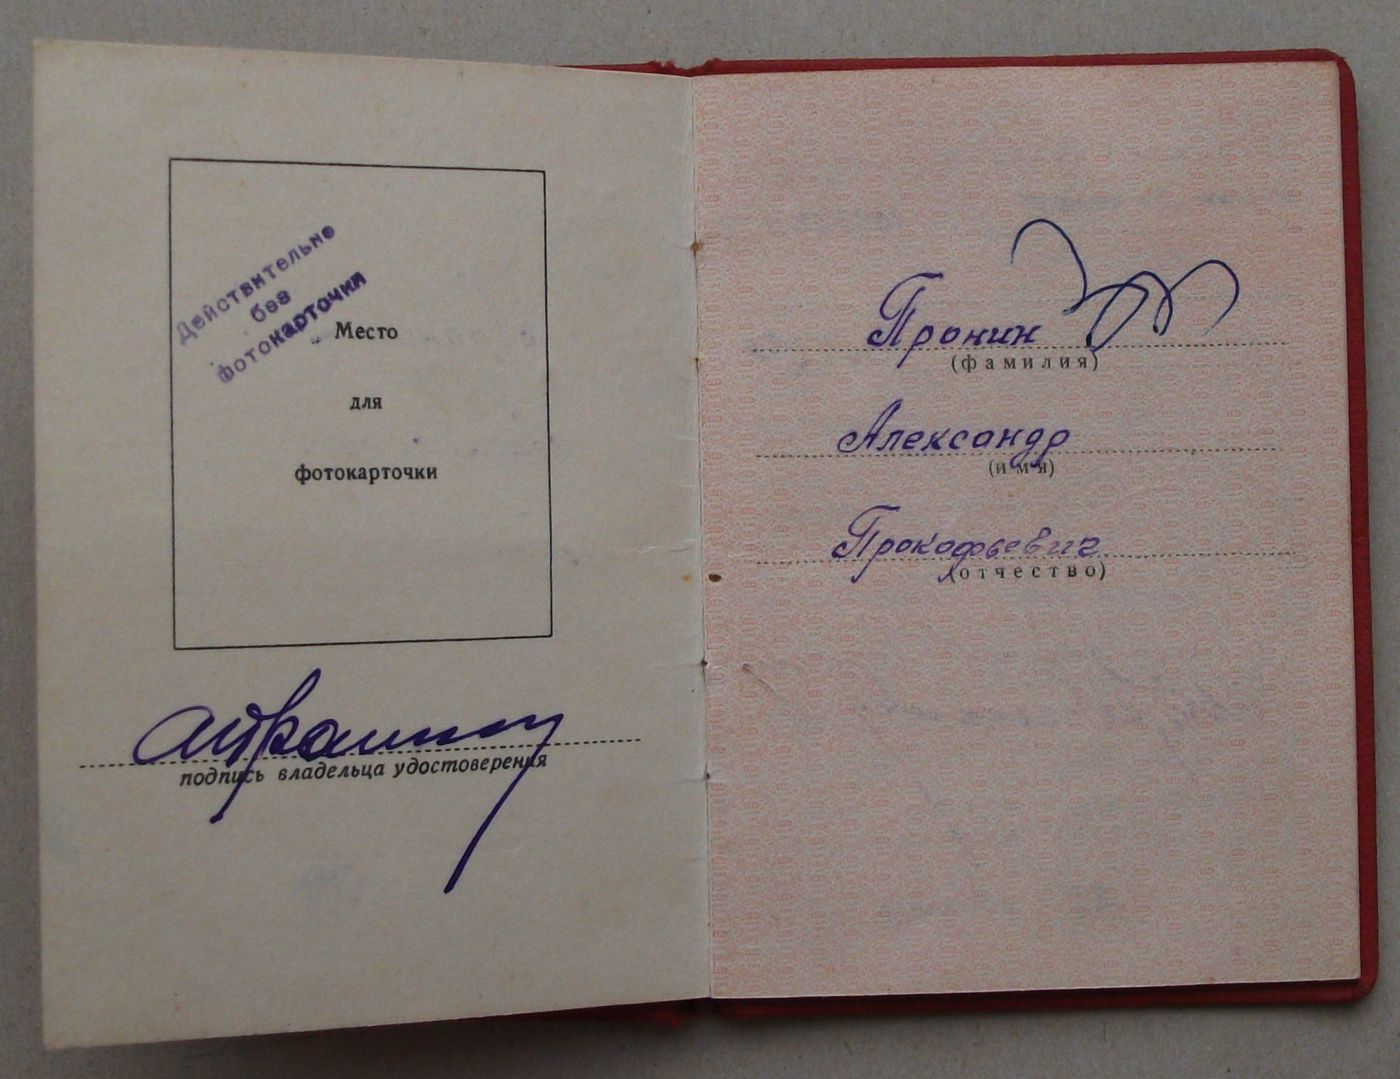 Действительно
без
фотокарточки
Место
для
фотокарточки
подпись владельца удостоверения
Пронин
(фамилия)
Александр
(имя)
Прокофьевич
(отчество)